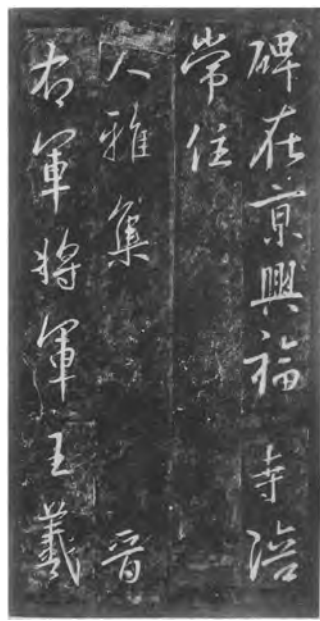 碑在京興福寺陪
常住
大雅集晉
右軍將軍王羲